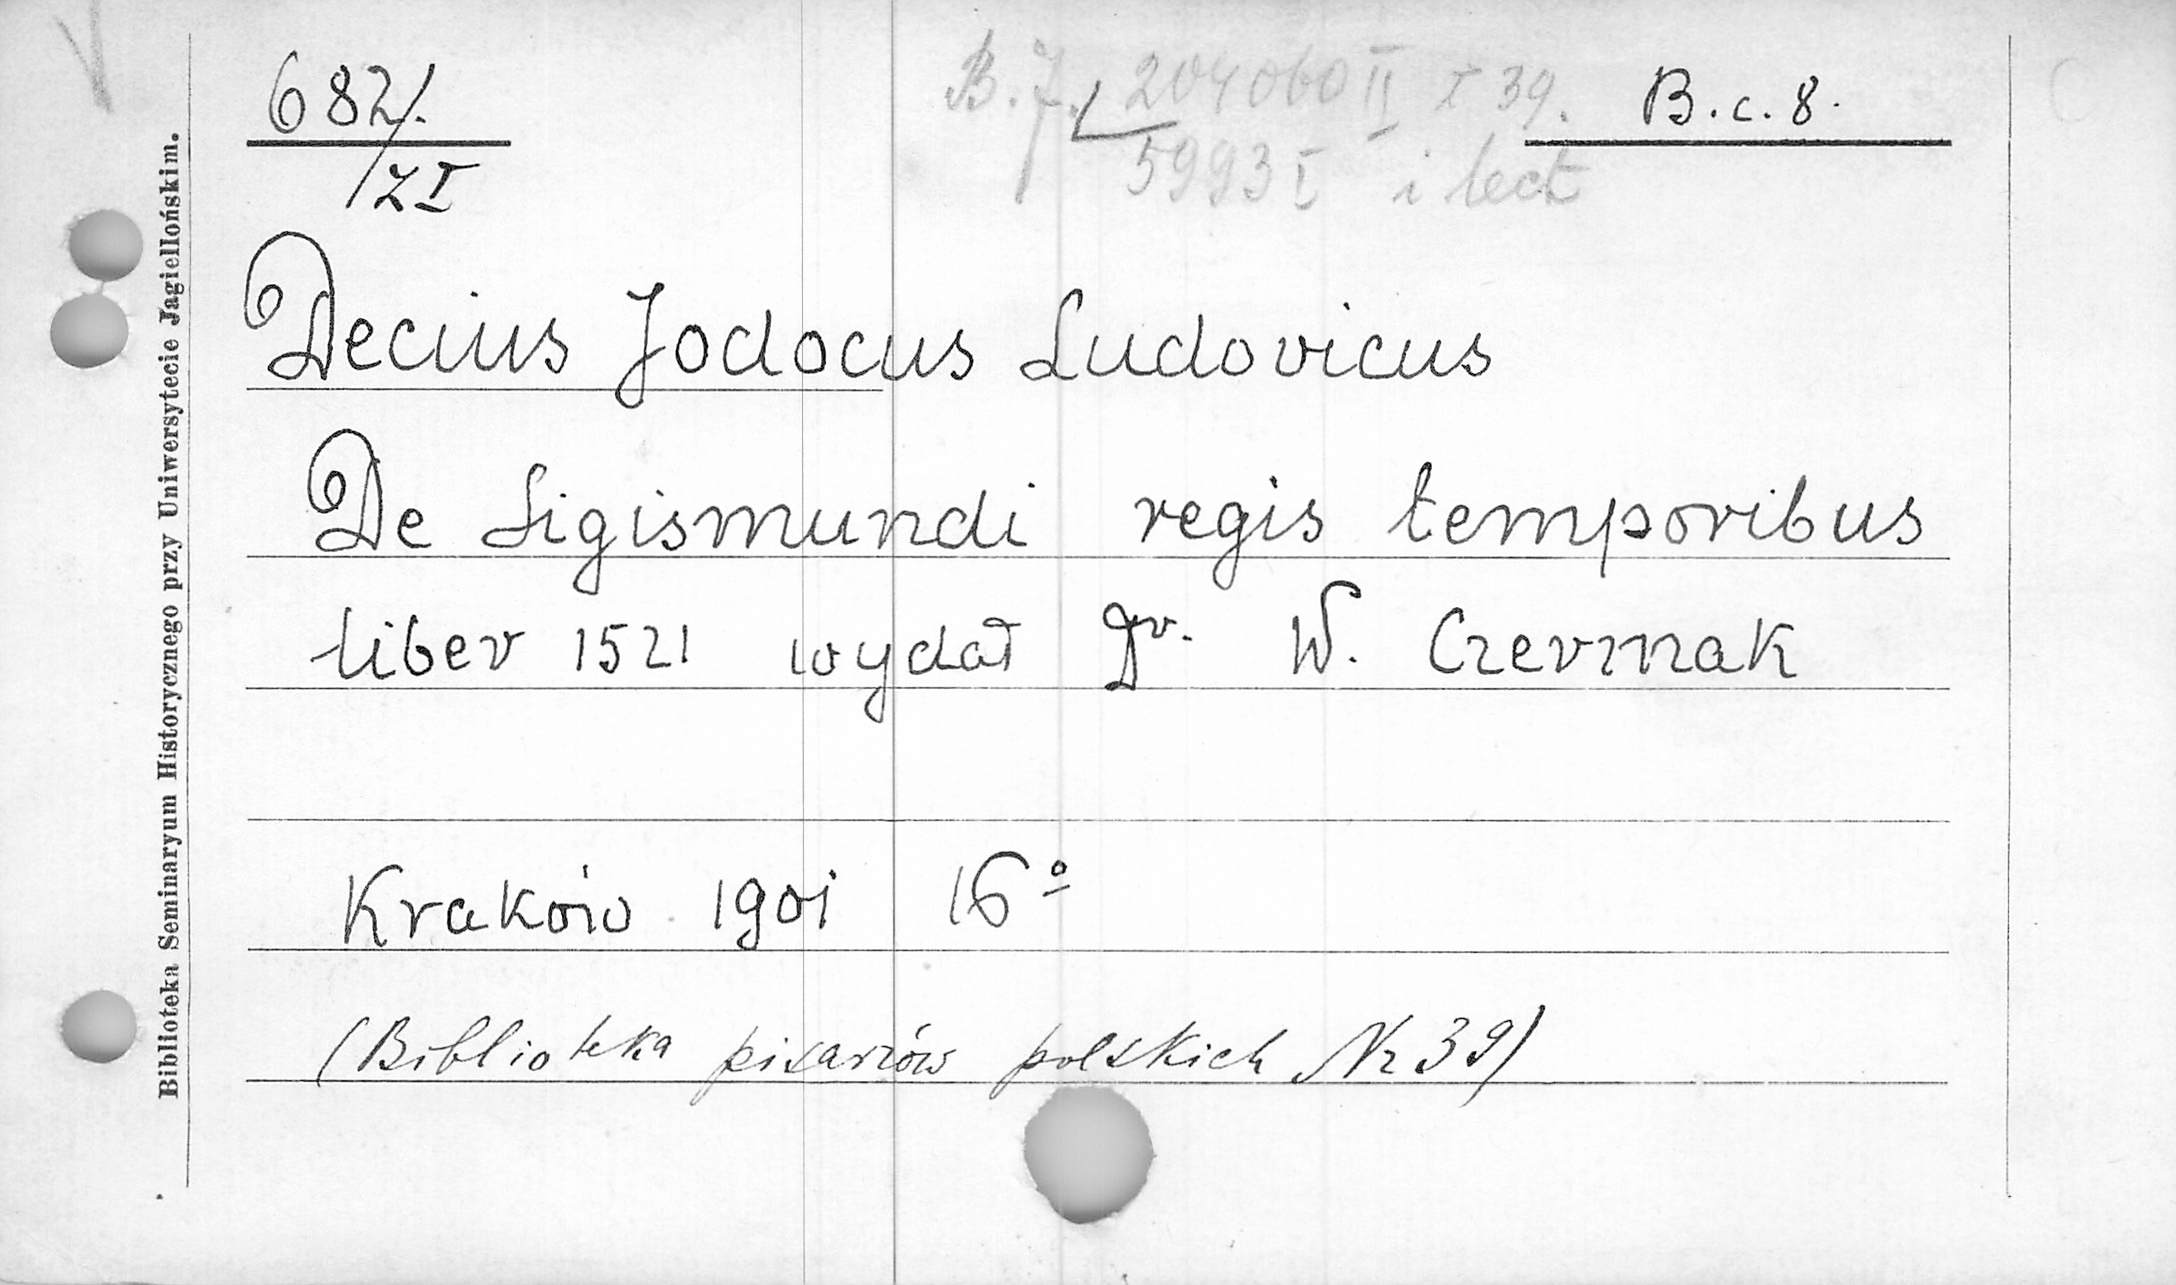 682/.
/ZI
B.J. 204060 II t 39.
5993 I i lect
B.c.8.
Decius Jodocus Ludovicus
De Sigismundi regis temporibus
liber 1521 wydał Dr. W. Czermak
Kraków 1901 16º
(Biblioteka pisarzów polskich Nr 39)
Biblioteka Seminaryum Historycznego przy Uniwersytecie Jagiellońskim.